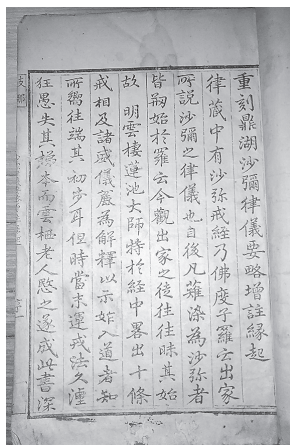 重刻鼎湖沙彌律儀要略增註緣起
律藏中有沙弥戒經乃佛度子羅云出家
所說沙彌之律儀也自後凡薙染為沙弥者
皆剏始於羅云今觀出家之徒往往昧其始
故 明雲棲蓮池大師特於經中畧出十條
戒相及諸威儀廣為解釋以示始入道者知
所嚮往端其初步耳但時當末運戒法久湮
狂愚失其標本而雲栖老人愍之遂成此書深